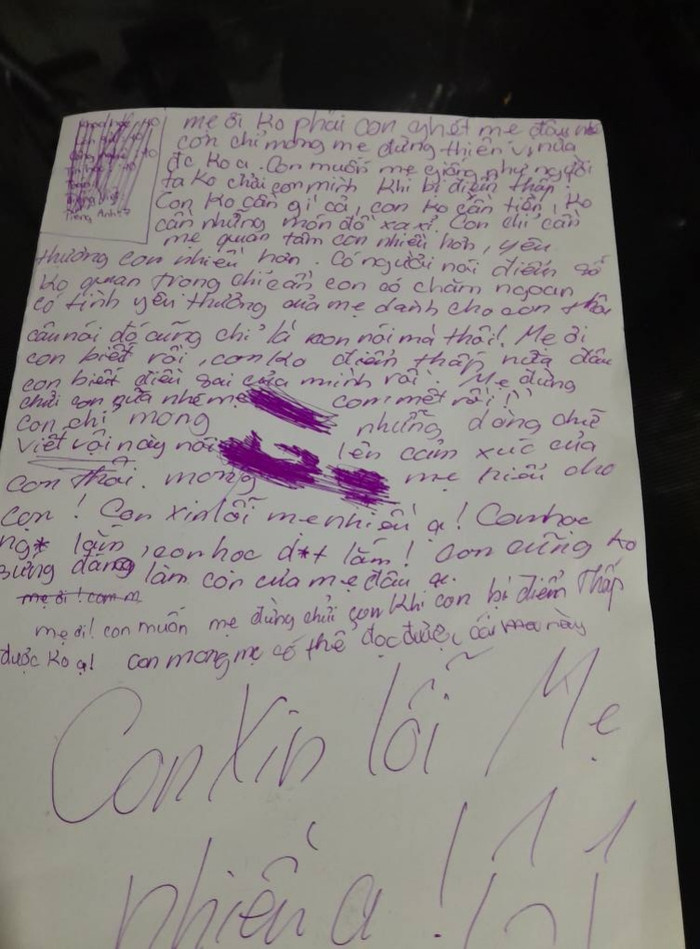 mẹ ơi ko phải con ghét mẹ đâu
con chỉ mong mẹ đừng thiên vị nữa
đc ko ạ. Con muốn mẹ giống như người
ta ko chửi con mình khi bị điểm thấp.
Con ko cần gì cả, con ko cần tiền, ko
cần những món đồ xa xỉ. Con chỉ cần
mẹ quan tâm con nhiều hơn, yêu
thương con nhiều hơn. Có người nói điểm số
ko quan trọng chỉ cần con có chăm ngoan
có tình yêu thương của mẹ dành cho con thôi
câu nói đó cũng chỉ là con nói mà thôi! Mẹ ơi
con biết rồi, con ko điểm thấp nữa đâu
con biết điều sai của mình rồi. Mẹ đừng
chửi con nữa nhé mẹ con mệt rồi
con chỉ mong những dòng chữ
viết vội này nói lên cảm xúc của
con thôi. mong mẹ hiểu cho
con! Con xin lỗi mẹ nhiều ạ! Con học
ng* lắm, con học d*t lắm! Con cũng ko
xứng đáng làm con của mẹ đâu ạ.
mẹ ơi! con m
mẹ ơi! con muốn mẹ đừng chửi con khi con bị điểm thấp
được ko ạ! con mong mẹ có thể đọc được này
Con Xin lỗi Mẹ
nhiều ạ!
Tiếng Anh